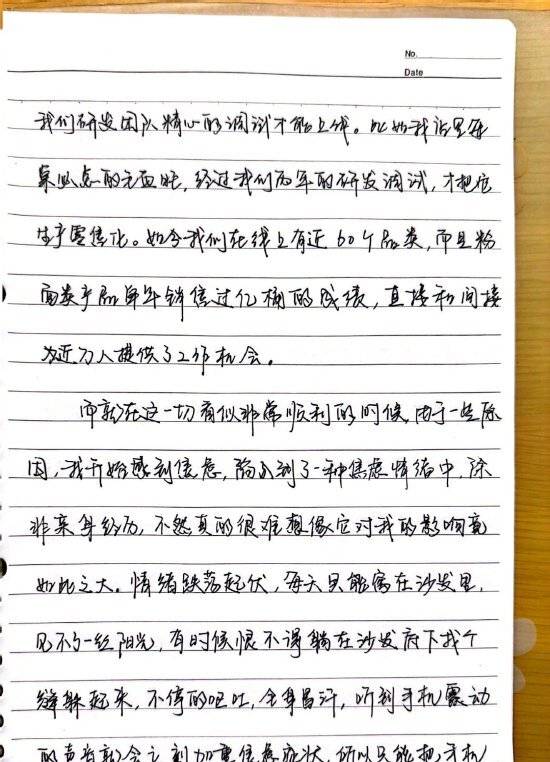 No.
Date
我们研发团队精心的调试才能上线。比如我店里每
桌必点的无血旺，经过我们两年的研发调试，才把它
生产零售化。如今我们在线上有近60个品类，而且粉
面类产品单年销售过亿桶的成绩，直接和间接
为近万人提供了工作机会。
而就在这一切看似非常顺利的时候，由于一些原
因，我开始感到焦虑，陷入到了一种焦虑情绪中，除
非亲身经历，不然真的很难想像它对我的影响竟
如此之大。情绪跌落起伏，每天只能窝在沙发里，
见不了一丝阳光，有时候恨不得躺在沙发底下找个
缝躲起来，不停的呕吐，全身冒汗，听到手机震动
的声音都会立刻加重焦虑症状，所以只能把手机